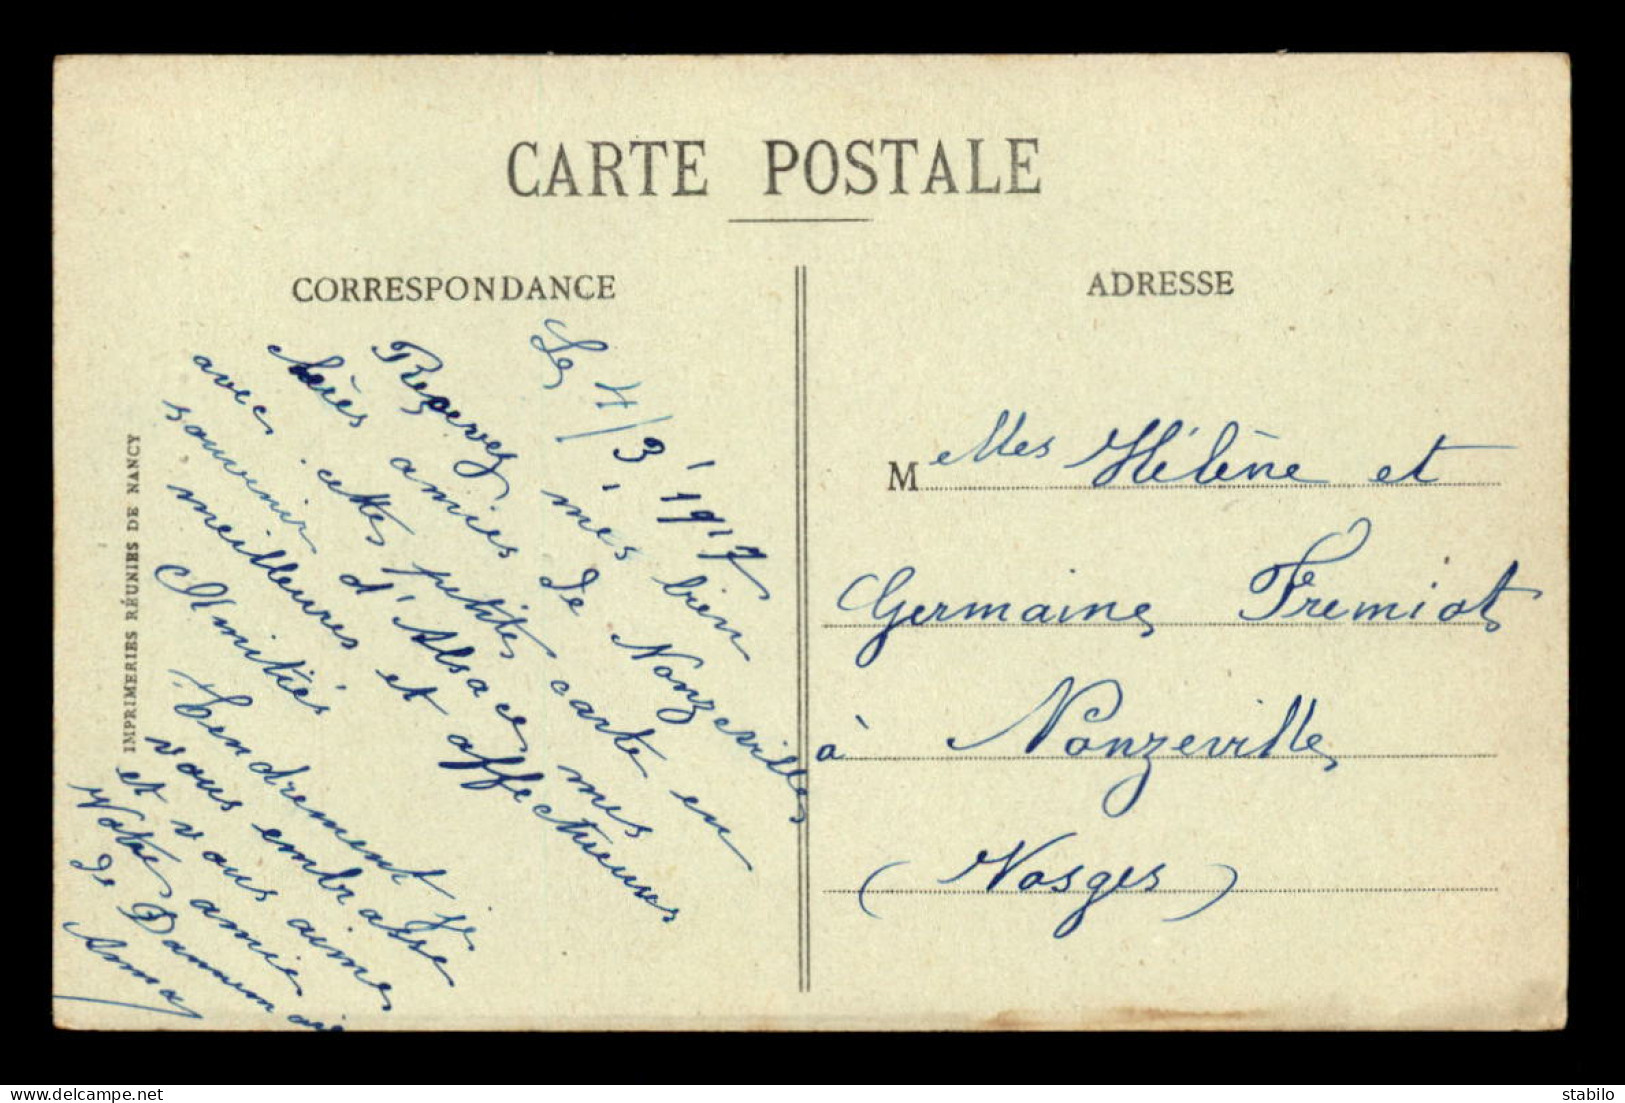 CARTE POSTALE
CORRESPONDANCE
ADRESSE
Le 4/3/1917
Recevez mes bien
chères amies de Nonzeville
avec cette petite carte en
souvenir d'Alsace mes
meilleures et affectueuses
Amitiés
Tendrement je
vous embrasse
et vous aime
Votre amie
de Dannemarie
Anna
IMPRIMERIES RÉUNIES DE NANCY
M elles Hélène et
Germaine Fremiot
à Nonzeville
(Vosges)
stabilo